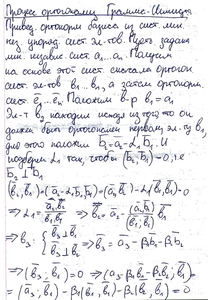 Процесс ортогонализ. Грамма-Шмидта
Привед. ортонорм базиса из сист. лин.
нез. упоряд. сист. эл-тов. Пусть задана
лин. независ. сист. a₁...aₙ. Получим
на основе этой сист. сначала ортогон.
сист. эл-тов b̄₁...b̄ₙ, а затем ортонорм.
сист. ē₁...ēₙ. Положим b-р b̄₁ = ā₁
Эл-т b̄₂ находим исходя из того что он
должен быть ортогонален первому эл-ту b̄₁,
для этого положим b̄₂ = ā₂ - L₁b̄₁ и
подберём L₁ так, чтобы (b̄₂, b̄₁) = 0, т.е
b̄₂ ⊥ b̄₁
(b̄₂, b̄₁) = (ā₂ - L₁b̄₁, b̄₁) = (ā₂, b̄₁) - L₁(b̄₁, b̄₁) = 0
⇒ L₁ = (ā₂, b̄₁) / (b̄₁, b̄₁) ⇒ b̄₂ = ā₂ - (ā₂, b̄₁) / (b̄₁, b̄₁) b̄₁
⇒ b̄₃: { b̄₃ ⊥ b̄₁
b̄₃ ⊥ b̄₂ ⇒ b̄₃ = ā₃ - β₁b̄₁ - β₂b̄₂
⇒ (b̄₃, b̄₁) = 0 ⇒ (ā₃ - β₁b̄₁ - β₂b̄₂, b̄₁) =
= (ā₃, b̄₁) - β₁(b̄₁, b̄₁) - β₂(b̄₂, b̄₁) = 0